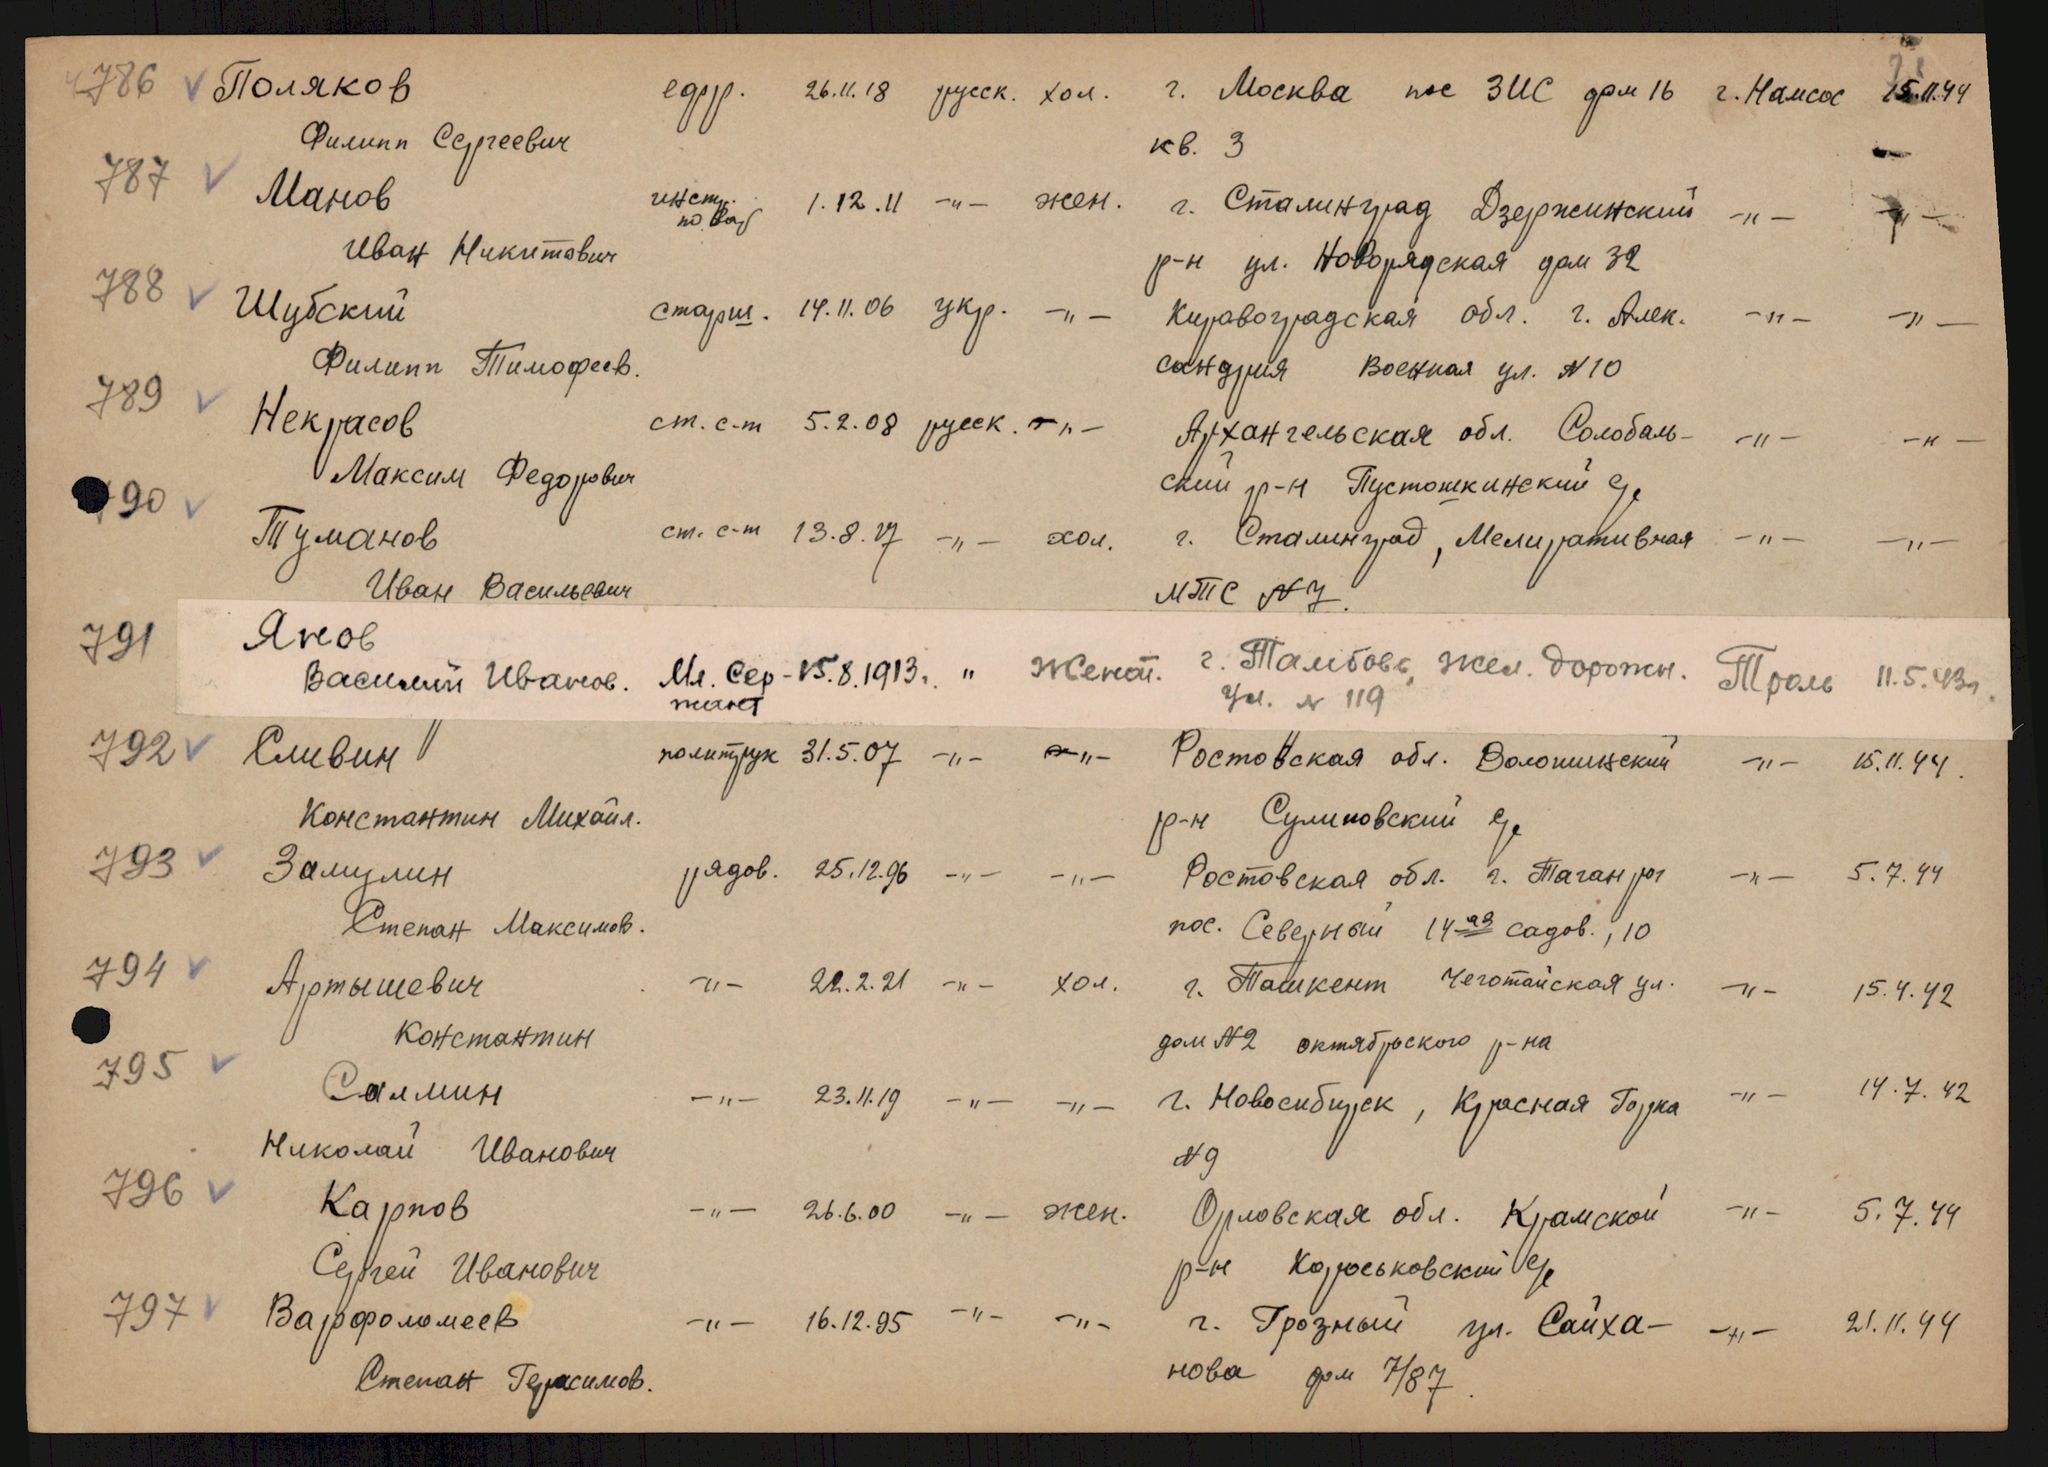 786 Поляков ефр. 26.11.18 русск. хол. г. Москва пос ЗИС дом 16 г. Намсос 15.11.44
Филипп Сергеевич кв. 3
787 Манов инстр. 1.12.11 -"- жен. г. Сталинград Дзержинский -"- -"-
по
Иван Никитович р-н ул. Новорядская дом 32
788 Шубский старш. 14.11.06 укр. -"- Кировоградская обл. г. Алек- -"- -"-
Филипп Тимофеев. сандрия Военная ул. N 10
789 Некрасов ст. с-т 5.2.08 русск. -"- Архангельская обл. Солобаль- -"- -"-
Максим Федорович ский р-н Пустошкинский с/с
790 Туманов ст. с-т 13.8.17 -"- хол. г. Сталинград, Мелиративная -"- -"-
Иван Васильевич МТС N 7.
791 Янов
Василий Иванов. Мл. Сер- 15.8.1913г. " Женат. г. Тамбов, Жел. Дорожн. Троль 11.5.43г.
жант ул. N 119
792 Сливин политрук 31.5.07 -"- -"- Ростовская обл. Волошинский -"- 15.11.44.
Константин Михайл. р-н Сулиновский с/с
793 Замулин рядов. 25.12.96 -"- -"- Ростовская обл. г. Таганрог -"- 5.7.44
Степан Максимов. пос. Северный 14ая садов., 10
794 Артышевич -"- 22.2.21 -"- хол. г. Ташкент Чеготайская ул. -"- 15.4.42
Константин дом N2 октябрьского р-на
795 Салмин -"- 23.11.19 -"- -"- г. Новосибирск, Красная Горка -"- 14.7.42
Николай Иванович N9
796 Карпов -"- 26.6.00 -"- жен. Орловская обл. Крамской -"- 5.7.44
Сергей Иванович р-н Хороськовский с/с
797 Варфоломеев -"- 16.12.95 -"- -"- г. Грозный ул. Сайха- -"- 21.11.44
Степан Герасимов. нова дом 7/87.